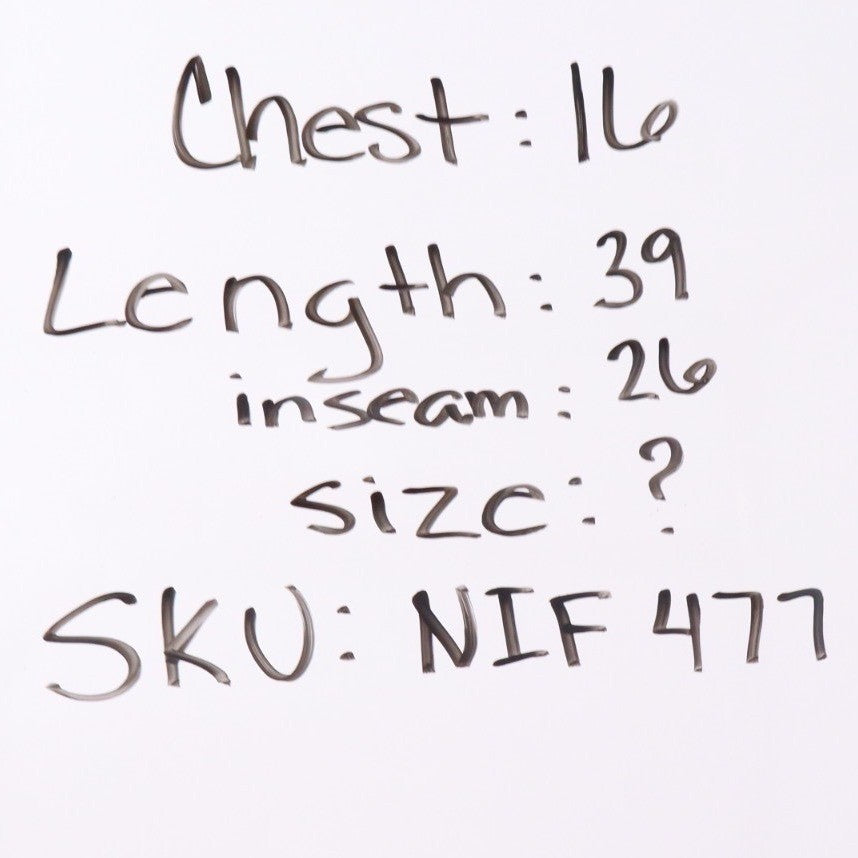 Chest: 16
Length: 39
inseam: 26
size: ?
SKU: NIF 477